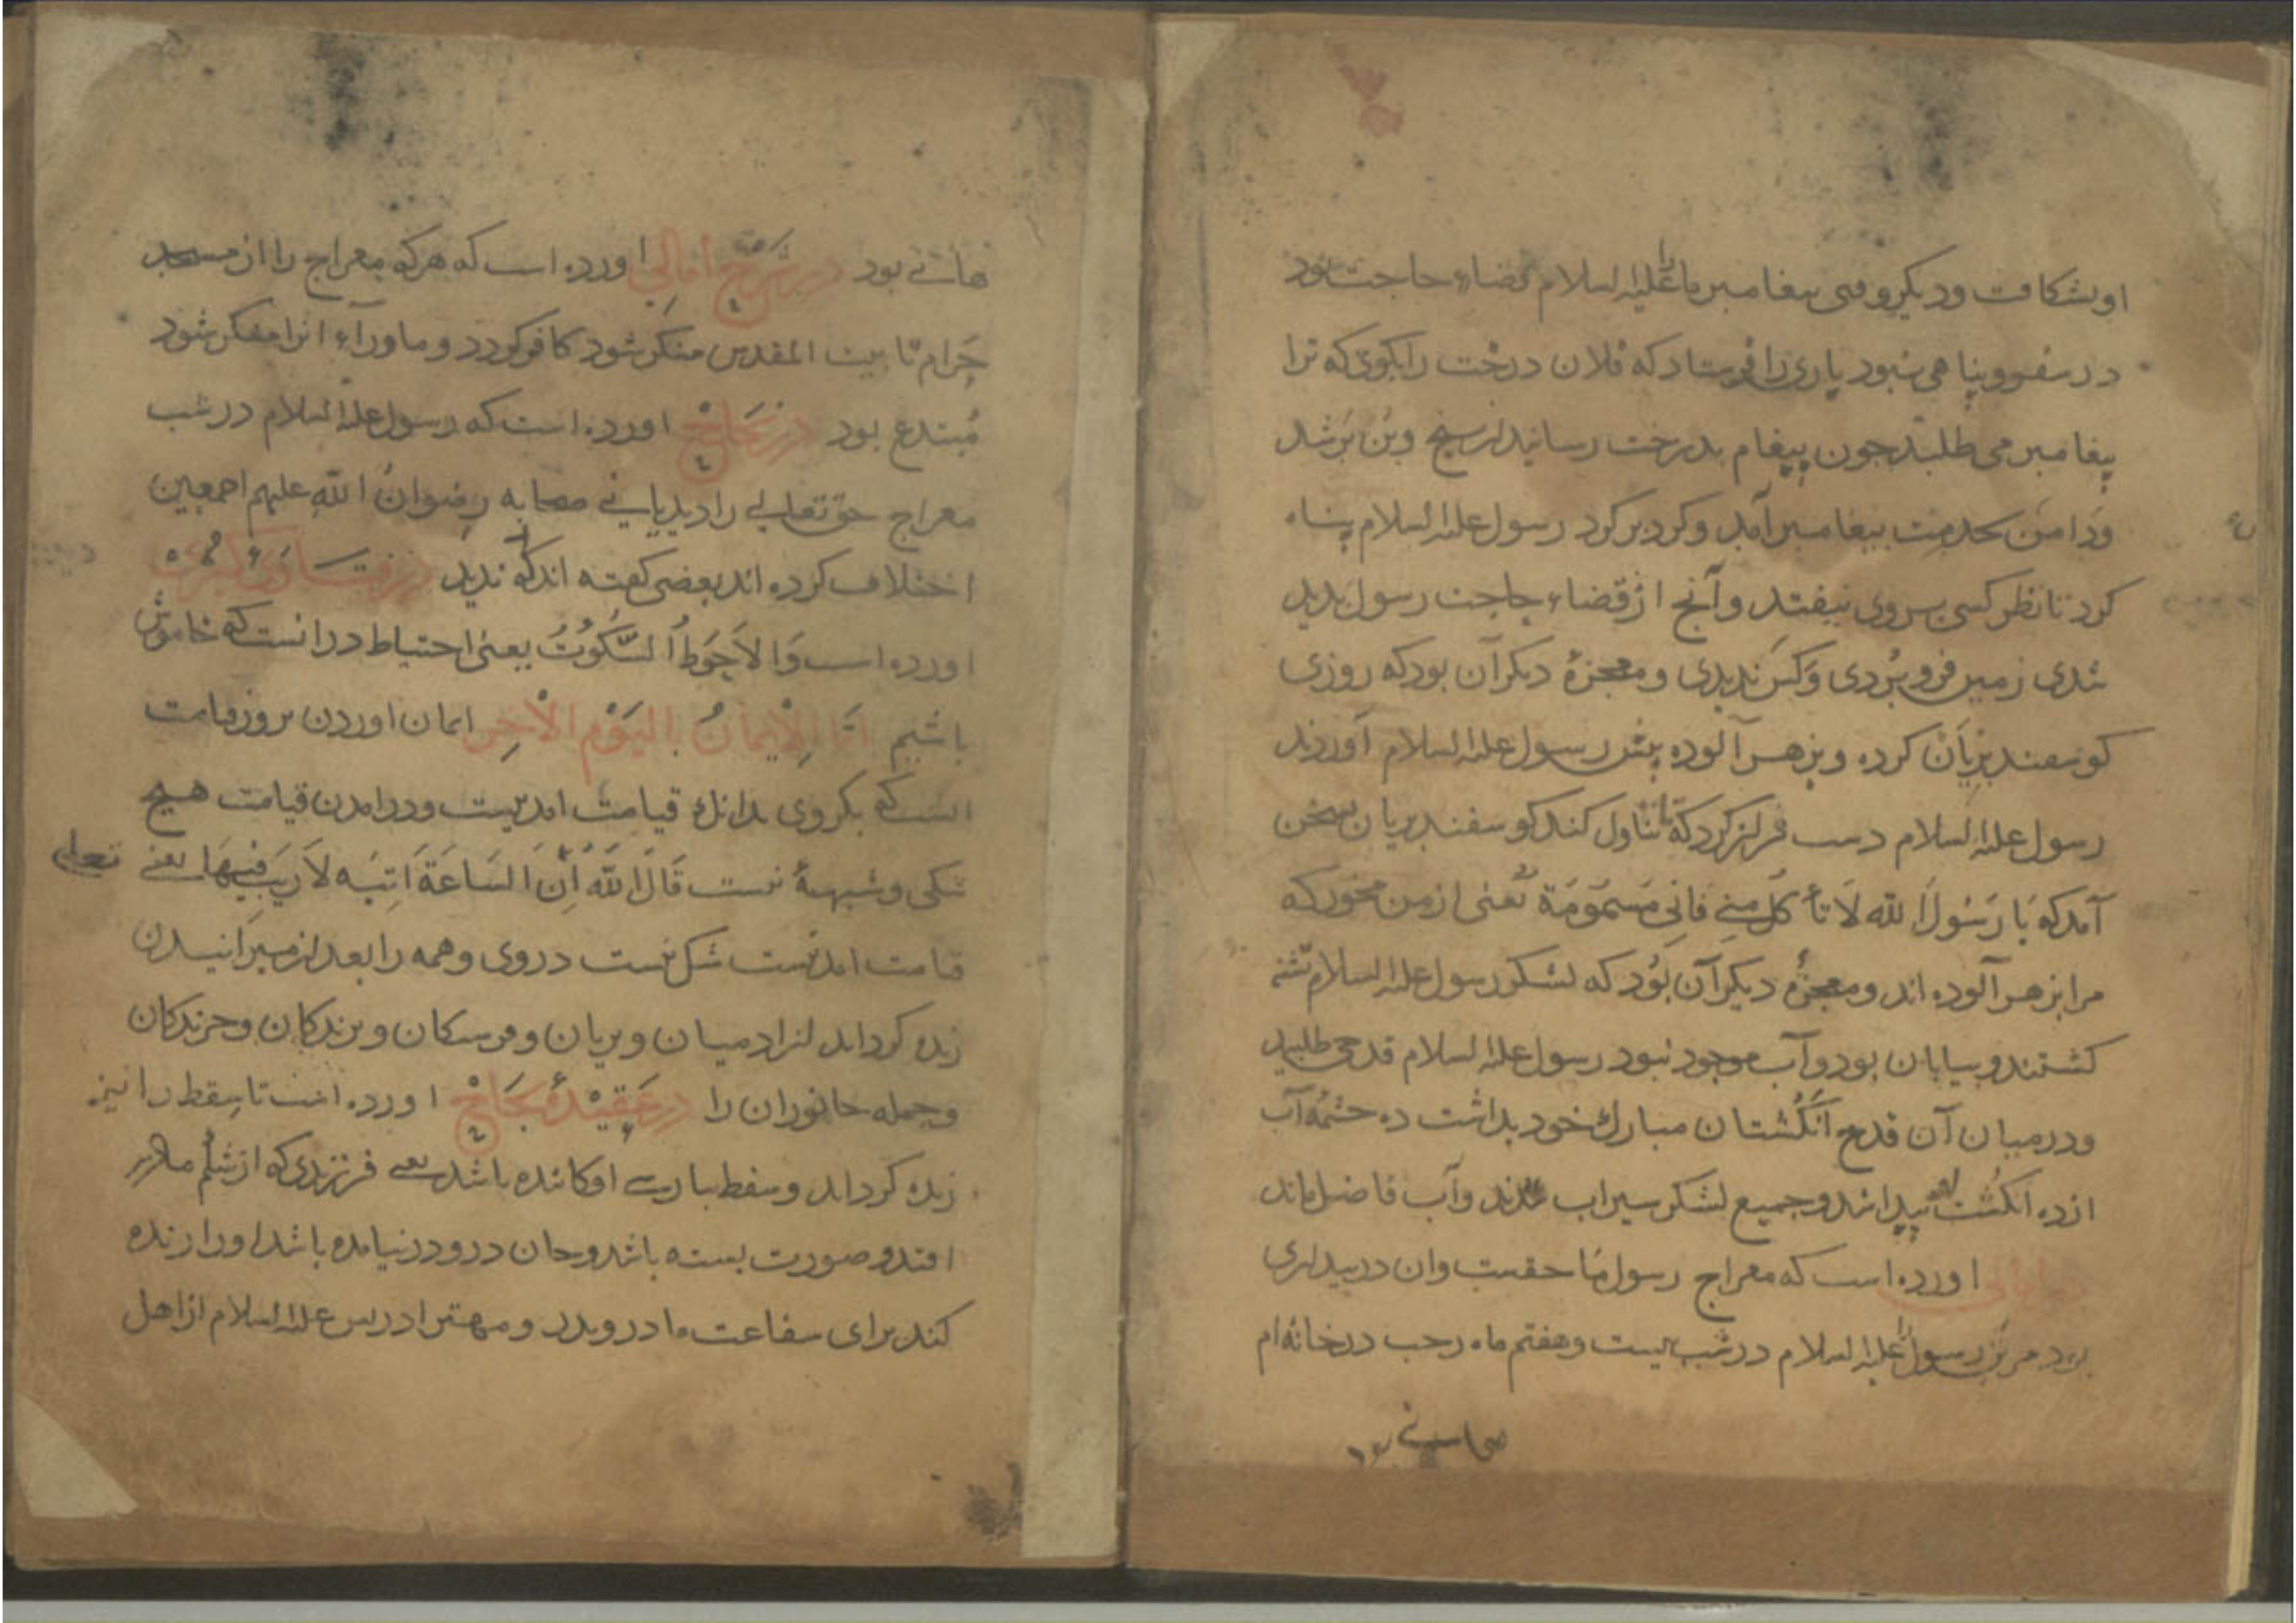 او بشکافت و دیکر وقتی پیغامبر ما را علیه السلام قضاء حاجت بود
در سفر و پناهی نبود یاری را فرستاد که فلان درخت را بکوی که ترا
پیغامبر می طلبد جون پیغام بدرخت رسانید از بیخ و بن بر شد
و دامن بخدمت پیغامبر آمد و کرد بر کرد رسول علیه السلام پناه
کرد تا نظر کسی بر وی نیفتد و آنج از قضاء حاجت رسول بدید
شدی زمین فرو بردی و کس ندیدی و معجزهٔ دیکر آن بود که روزی
کوسفند بزیان کرده و بزهر آلوده پیش رسول علیه السلام آوردند
رسول علیه السلام دست فراز کرد که تا تناول کند کوسفند بریان بسخن
آمد که یا رسول الله لا تأکل منی فانی مسمومة یعنی از من مخور که
مرا بزهر آلوده اند و معجزهٔ دیکر آن بود که لشکر رسول علیه السلام تشنه
کشتند و بیابان بود و آب موجود نبود رسول علیه السلام قدحی طلبید
و در میان آن قدح انکشتان مبارک خود بداشت ده چشمهٔ آب
از ده انکشت او پیدا شد و جمیع لشکر سیراب شدند و آب فاضل ماند
اورده است که معراج رسول ما حقست وان در بیداری
بود مر رسول را علیه السلام در شب بیست و هفتم ماه رجب در خانهٔ ام
هانی بود
هانی بود در شرح امالی اورده است که هر که معراج را از مسجد
حرام تا بیت المقدس منکر شود کافر کردد و ماوراء انرا منکر شود
مبتدع بود در نجاح اورده است که رسول علیه السلام در شب
معراج حق تعالی را دید یا نی صحابه رضوان الله علیهم اجمعین
اختلاف کرده اند بعضی کفته اند که ندید در فتاوی کبری
اورده است و الاحوط السکوت یعنی احتیاط در انست که خاموش
باشیم اما الایمان بالیوم الاخر ایمان اوردن بروز قیامت
انست که بکروی بدانک قیامت امدنیست و در امدن قیامت هیچ
شکی و شبههٔ نیست قال الله تعالی ان الساعة اتیه لا ریب فیها یعنی
قیامت امدنیست شک نیست در وی و همه را بعد از میرانیدن
زنده کرداند از ادمیان و پریان و فرشتکان و پرندکان و چرندکان
و جمله جانوران را در عقیدهٔ نجاح اورده است تا سقط را نیز
زنده کرداند و سقط بپارسی افکانده باشد یعنی فرزندی که از شکم مادر
افتد و صورت بسته باشد و جان در و در نیامده باشد او را زنده
کند برای شفاعت مادر و پدر و مهتر ادریس علیه السلام از اهل